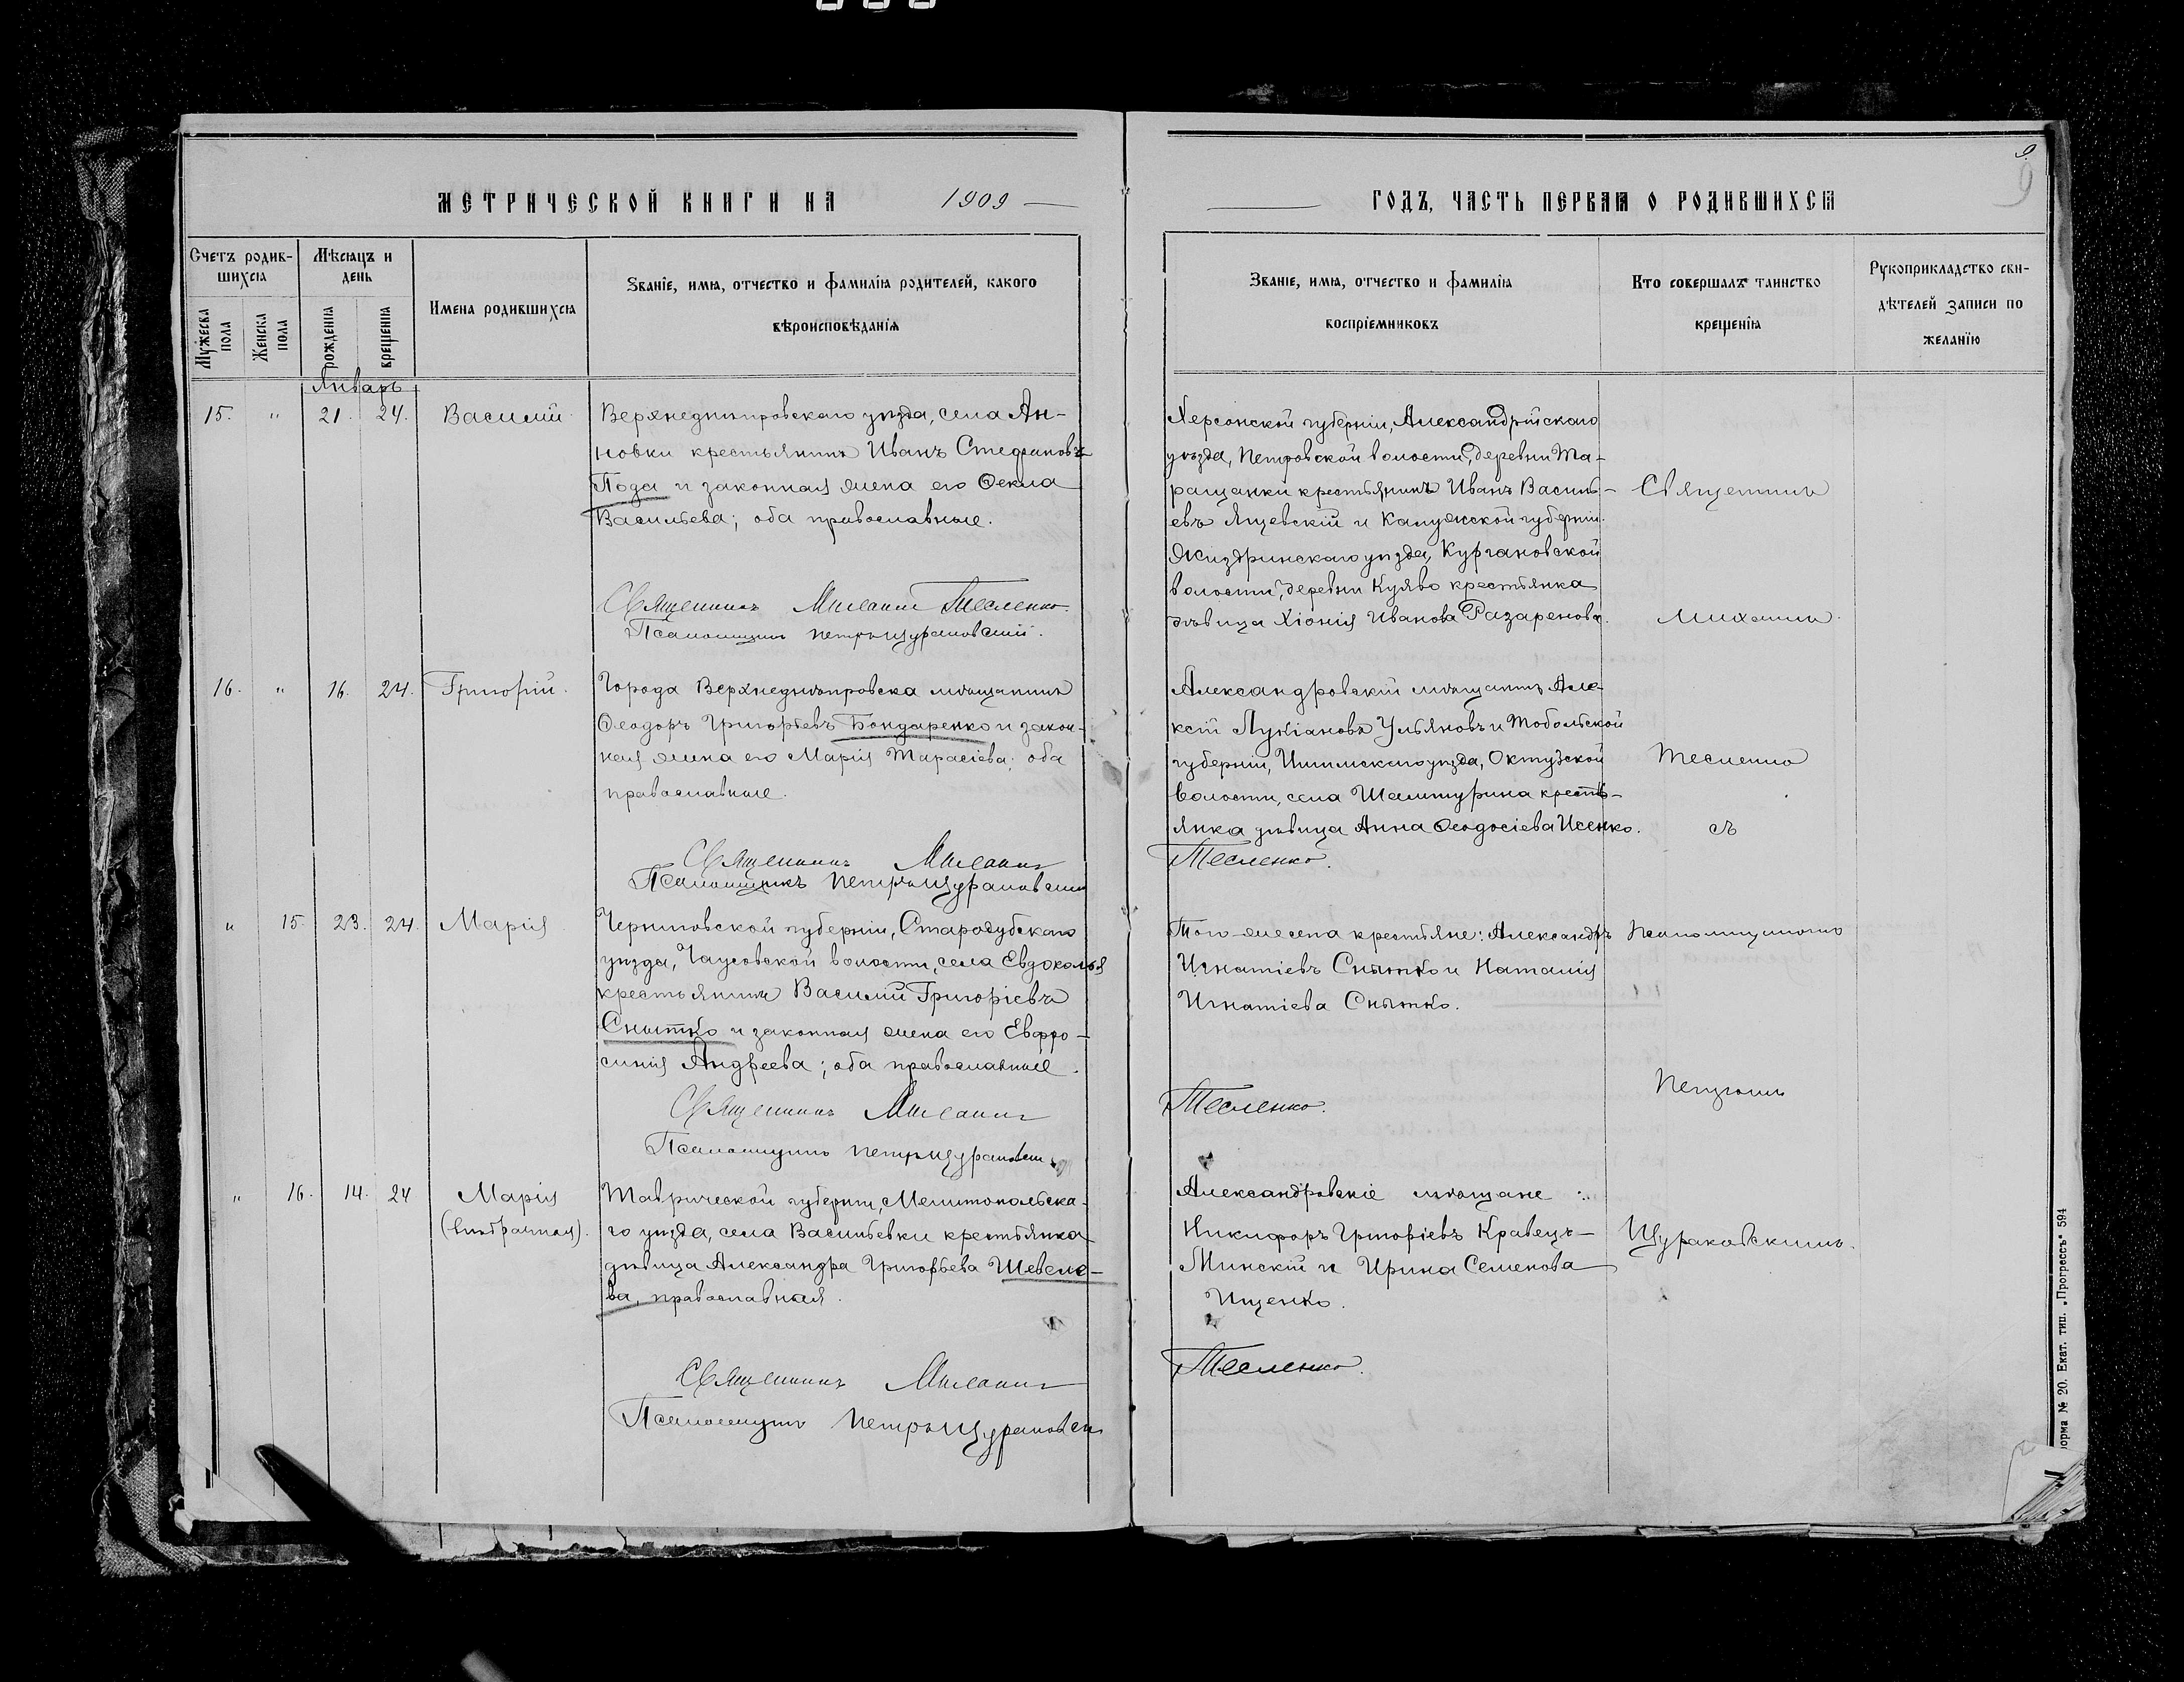 МЕТРИЧЕСКОЙ КНИГИ НА 1909
Счетъ родив-
шихся
Мужеска
пола
Женска
пола
Мѣсяцъ и
день
рожденія
крещенія
Имена родившихся
Званіе, имя, отчество и фамилія родителей, какого
вѣроисповѣданія
Январь
15. " 21. 24. Василій
Верхнеднѣпровскаго уѣзда, села Ан-
новки крестьянинъ Иванъ Стефановъ
Пода и законная жена его Ѳекла
Васильева; оба православные.
Священникъ Михаилъ Тесленко.
Псаломщикъ Петръ Щураковскій.
16. " 16. 24. Григорій.
Города Верхнеднѣпровска мѣщанинъ
Ѳеодоръ Григорьевъ Бондаренко и закон-
ная жена его Марія Тарасіева; оба
православные.
Священникъ Михаилъ
Псаломщикъ Петръ Щураковскій
" 15. 23. 24. Марія
Черниговской губерніи, Стародубскаго
уѣзда, села
крестьянинъ Василій Григоріевъ
Снытко и законная жена его Евфро-
синія Андреева; оба православные.
Священникъ Михаилъ
Псаломщикъ Петръ Щураковскій
" 16. 14. 24 Марія
(внѣбрачная).
Таврической губерніи, Мелитопольска-
го уѣзда, села Васильевки крестьянка
дѣвица Александра Григорьева Шевеле-
ва, православная.
Священникъ Михаилъ
Псаломщикъ Петръ Щураковскій
9.
9
ГОДЪ, ЧАСТЬ ПЕРВАЯ О РОДИВШИХСЯ
Званіе, имя, отчество и фамилія
воспріемниковъ
Кто совершалъ таинство
крещенія
Рукоприкладство сви-
дѣтелей записи по
желанію
Херсонской губерніи, Александрійскаго
уѣзда, Петровской волости, деревни Та-
ращанки крестьянинъ Иванъ Василь-
евъ Ящевскій и Калужской губерніи
Жиздринскаго уѣзда, Кургановской
волости, деревни крестьянка
дѣвица Хіонія Иванова Разаренова.
Александровскій мѣщанинъ Але-
ксій Лукіановъ Ульяновъ и Тобольской
губерніи, Ишимскаго уѣзда, Октузской
волости, села кресть-
янка дѣвица Анна Ѳеодосіева Исенко.
Тесленко.
Того-же села крестьяне: Александръ
Игнатіевъ Снытко и Наталія
Игнатіева Снытко.
Тесленко.
Александровскіе мѣщане:
Никифоръ Григоріевъ Кравецъ-
Минскій и Ирина Семенова
Ищенко.
Тесленко.
Священникъ
Михаилъ
Тесленко
съ
Псаломщикомъ
Петромъ
Щураковскимъ.
орма № 20. Екат. тип. „Прогрессъ" 594